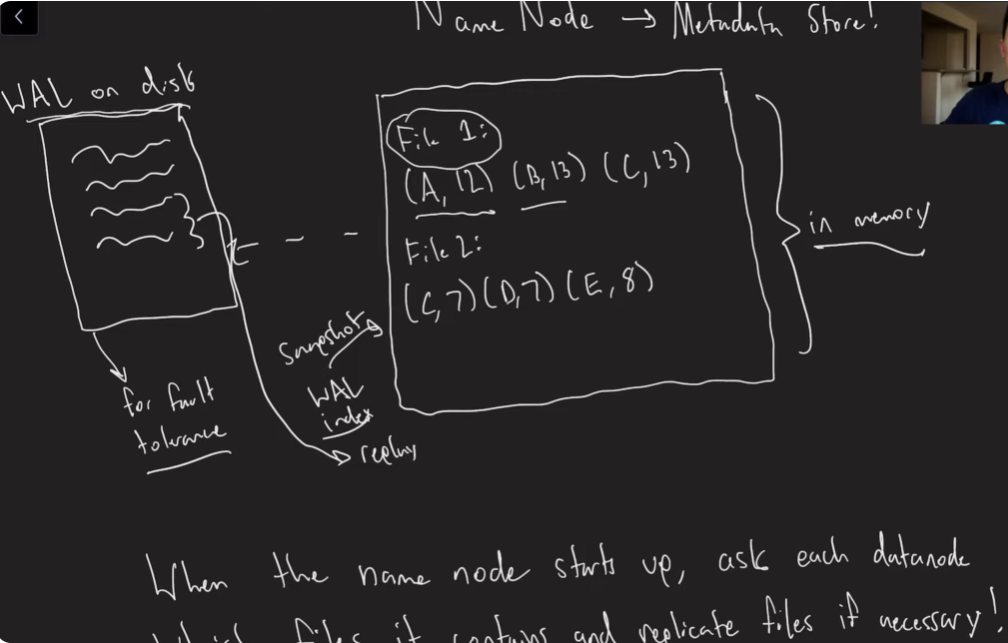 Name Node → Metadata Store!
WAL on disk
File 1:
(A, 12) (B, 13) (C, 13)
File 2:
(C, 7) (D, 7) (E, 8)
in memory
Snapshot
WAL
index
replay
for fault
tolerance
When the name node starts up, ask each datanode
which files it contains and replicate files if necessary!